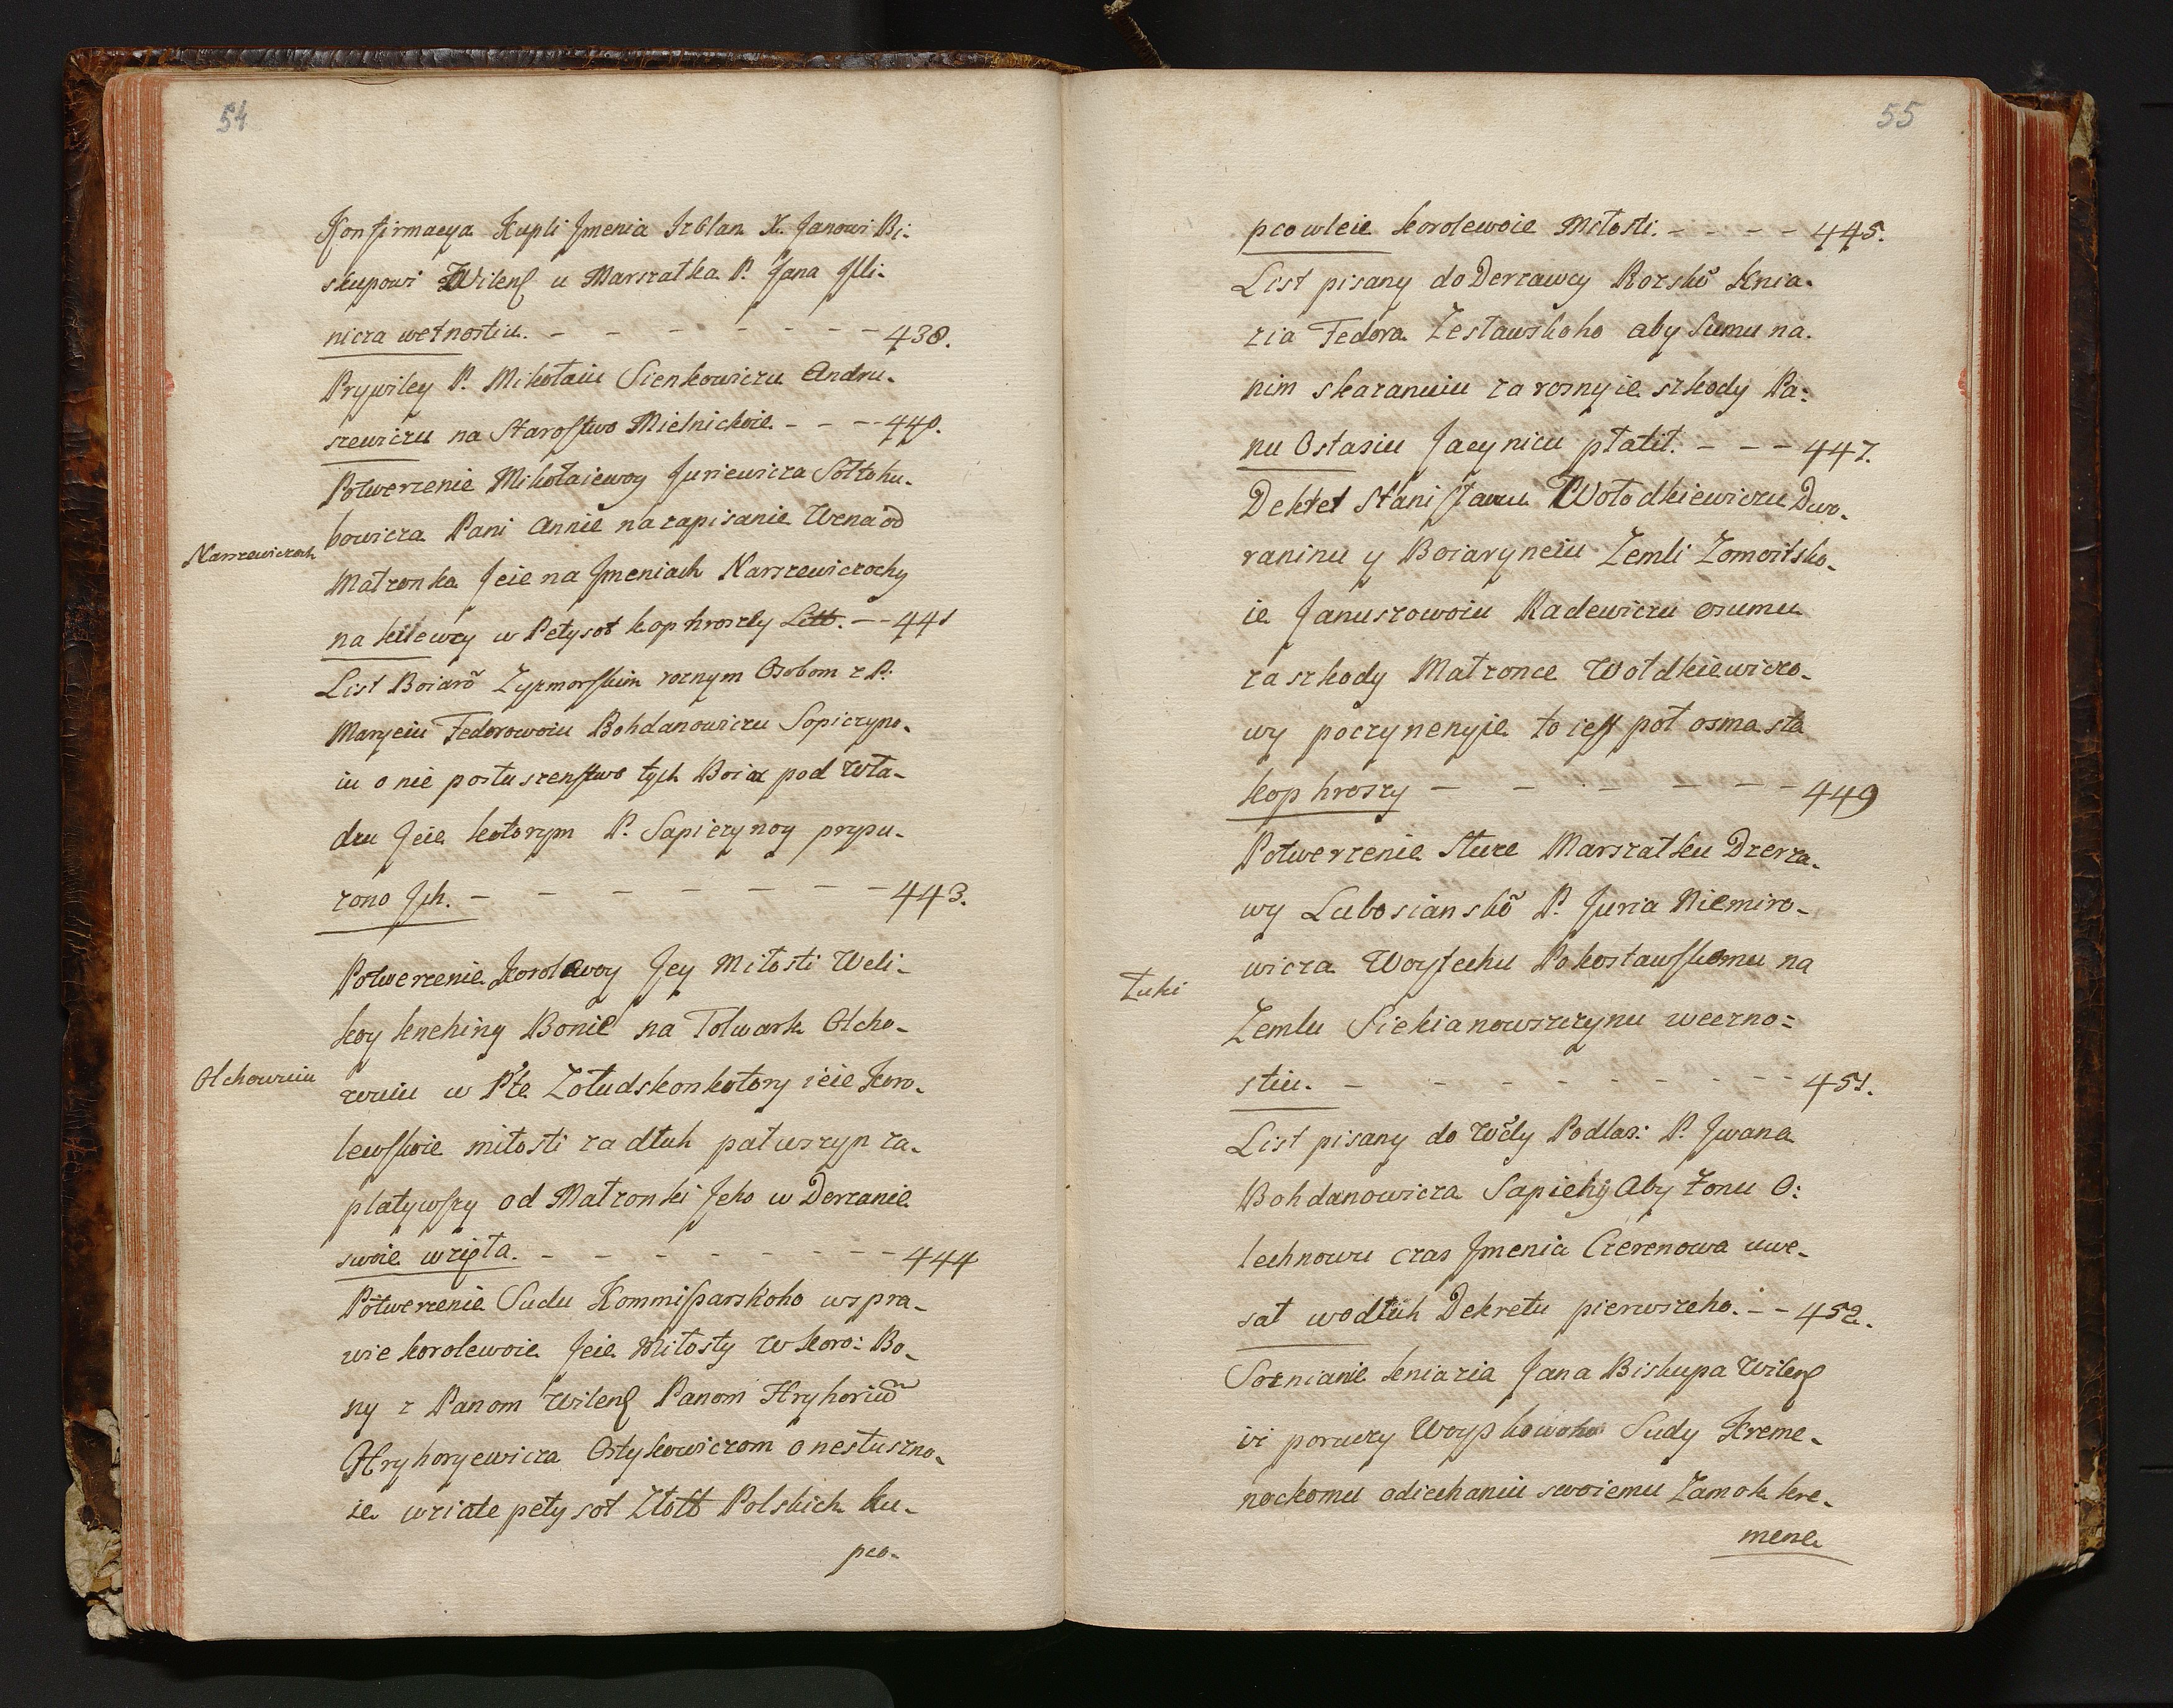 54
Konfirmacya Kupli Jmenia Izblan X. Janowi Bi:
skupowi Wilens u Marszałka P. Jana Jlli-
nicza wetnostiu. - - - - - - - 438.
Prywiley P. Mikołaiu Sienkowiczu Andru-
szewiczu na Starostwo Mielnickoie - - - 440.
Potwerzenie Mikołaiewoy Juriewicza Sołtohu-
bowicza Pani Annie na zapisanie Wena od
Narszewiczoch
Małzonka Jeie na Jmeniach Narszewiczochy
na kilewzy w Petysot kop hroszty Litt. - - 441
List Boiarõ Zyzmorskim roznym Osobom z P.
Maryeiu Fedorowoiu Bohdanowiczu Sopiczyno-
iu o nie posłuszenstwo tych Boiar pod Wła-
dzu Jeie kotorym P. Sapiezynoy prypu-
zono Jch. - - - - - - - 443.
Potwerzenie Korolewoy Jey Miłosti Weli-
koy knehiny Bonie na Tolwark Olcho-
Olchowuiu
wuiu w Pte Zołudskon kotory ieie Koro-
lewskoie miłosti za dłuh pałuszyn za-
płatywszy od Małzonki Jeho w Derzanie
swoie wzięła. - - - - - - - 444
Potwerzenie Sudu Kommissarskoho w spra-
wie korolewoie Jeie Miłosty W koro: Bo-
ny z Panom Wilens Panom Hryhoriẽ
Hryhoryewicza Ostykowiczom o nesłuszno-
ie wziate pety sot Złott Polskich ku-
pco-
55
pcowleie korolewoie Miłosti. - - - - 445.
List pisany do Derzawcy Rozskõ Knia-
zia Fedora Zesławskoho aby Sumu na-
nim skazanuiu za roznyie szkody Pa:
nu Ostasiu Jacynicu płatit. - - - 447.
Dektet Stanisławu Wołodkiewiczu Dwo-
raninu y Boiaryneiu Zemli Zomoitsko-
ie Januszowoiu Radewiczu osumu
za szkody Małzonce Wołdkiewiczo-
wy poczynenyie to iest poł osma sta
kop hroszy - - - - - - 449
Potwerzenie Sluze Marszałku Dzerza-
wy Lubosianskõ P. Juria Niemiro-
wicza Woyſechu Pokosławskomu na
Łuki
Zemlu Siekianowszczynu weczno=
stiu. - - - - - - - - - 451.
List pisany do Wdy Podlas: P. Jwana
Bohdanowicza Sapiehy Aby Zonu O:
lechnowu czas Jmenia Czerenowa uwe-
sał wodłuh Dekretu pierwszeho. - - 452.
Soznianie kniazia Jana Biskupa Wilens
ii poruczy Sudy Kreme-
nockomu odiechaniu swoiemu Zamok kre-
mene